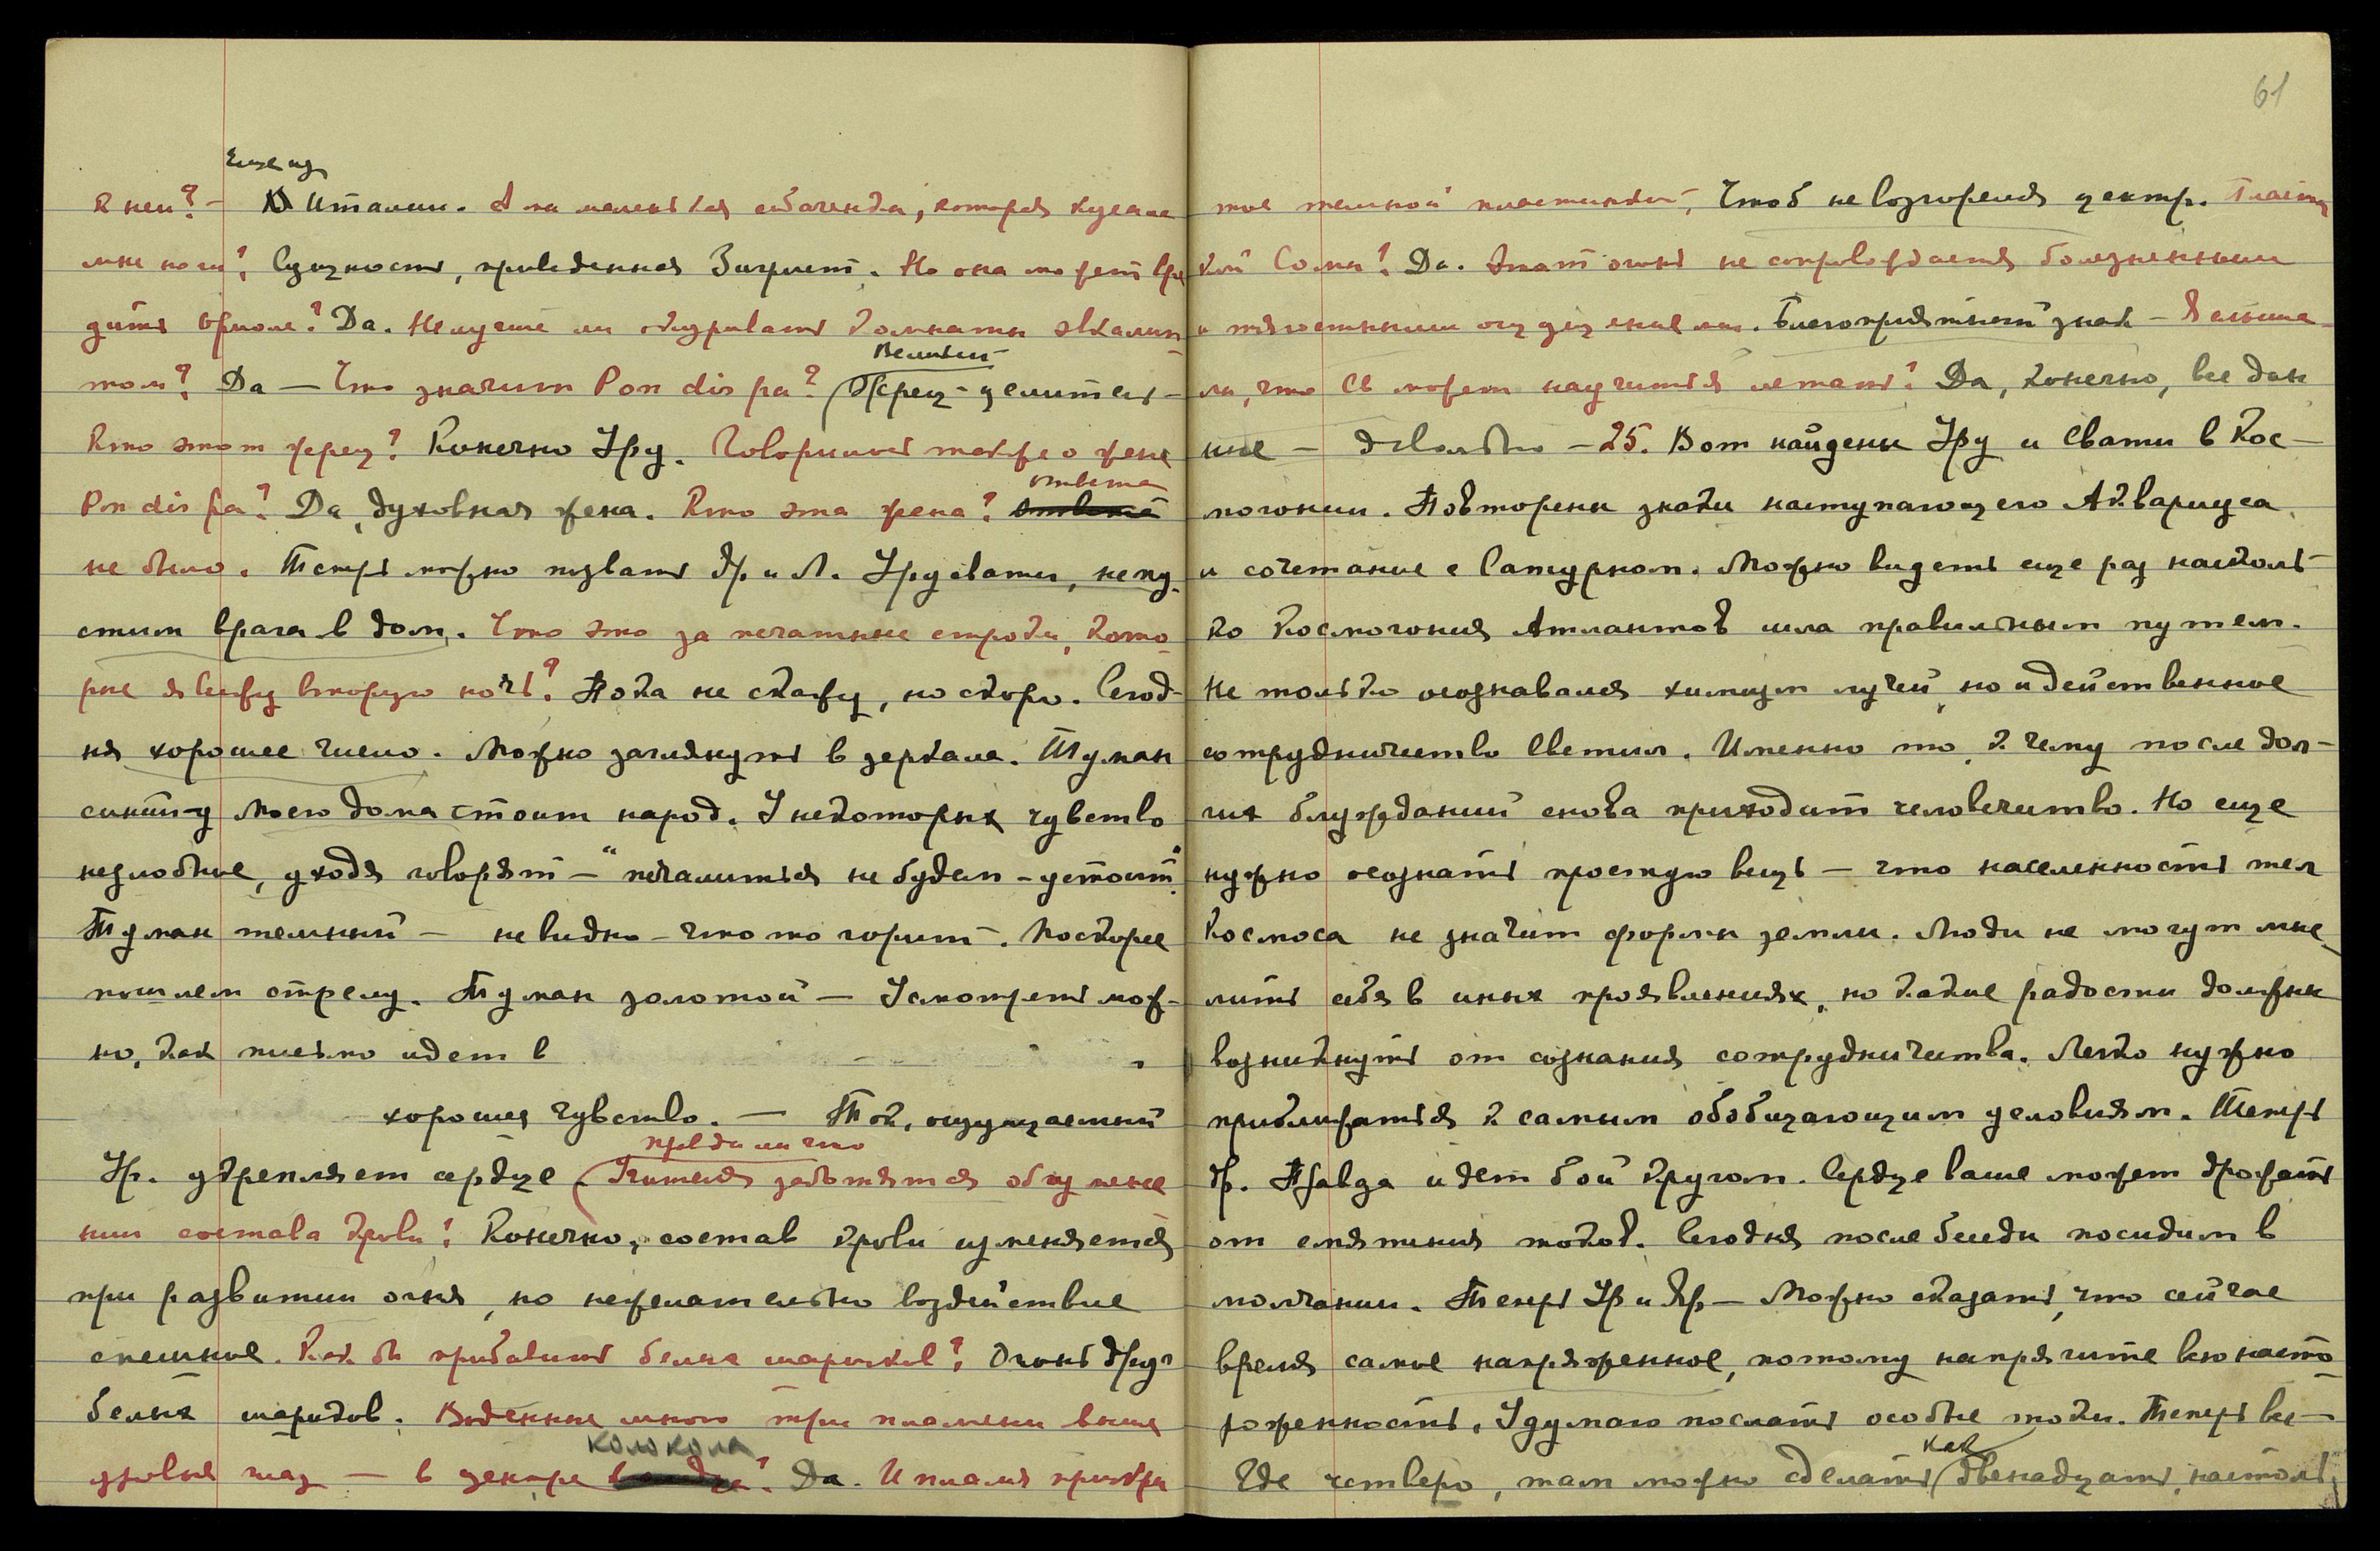 61
Еще из
к ней? – Италии. А та маленькая собаченка, которая кусала
мне ноги? Сущность, приведенная Зигрит. Но она может вре
дить Ояоле? Да. Не лучше ли окуривать комнаты эвкалип
том? Да — Что значит Pon dis pa? Великий Жрец-целитель –
Кто этот жрец? Конечно Уру. Говорилось также о жене
Pon dis pa? Да, духовная жена. Кто эта жена? ответа
не было. Теперь можно позвать Яр. и Л. Урусвати, не пу-
стим врага в дом. Что это за печатные строки, кото-
рые я вижу вторую ночь? Пока не скажу, но скоро. Сегод-
ня хорошее число. Можно заглянуть в зеркало. Туман
синий – у моего дома стоит народ. У некоторых чувство
незлобное, уходя говорят – "печалиться не будем – устоит".
Туман темный — не видно – что то горит. Поскорее
пошлем стрелу. Туман золотой — Усмотреть мож-
но, как письмо идет в
хорошее чувство. — Ток, ощущаемый
Ур. укрепляет сердце (правда ли что Учителя заботятся об изме не
нии состава крови? Конечно, состав крови изменяется
при развитии огня, но нежелательно воздействие
спешное. Как бы прибавить белых шариков? Огонь друг
белых шариков. Виденные мною три пламени выше
уровня глаз — в центре колокола? Да. И пламя прикры
тое темной пластинкой, Чтоб не возгорелся центр. Пласти
кой Сомы? Да. Этот огонь не сопровождается болезненными
и тягостными ощущениями. Благоприятный знак – Я слыша-
ла, что Св может научиться летать? Да, конечно, все дан
ные — довольно – 25. Вот найдены Уру и Свати в Кос-
могонии. Повторены знаки наступающего Аквариуса
и сочетание с Сатурном. Можно видеть еще раз насколь-
ко Космогония Атлантов шла правильным путем.
Не только осознавался химизм лучей, но и действенное
сотрудничество Светил. Именно то, к чему после дол-
гих блужданий снова приходит человечество. Но еще
нужно осознать простую вещь — что населенность тел
Космоса не значит формы земли. Люди не могут мыс
лить себя в иных проявлениях, но какие радости должны
возникнуть от сознания сотрудничества. Легко нужно
приближаться к самым обобщающим условиям. Теперь
Яр. Правда идет бой кругом. Сердце ваше может дрожать
от смятения токов. Сегодня после беседы посидим в
молчании. Теперь Ур и Яр — Можно сказать, что сейчас
время самое напряженное, потому напрягите всю насто
роженность. Удумаю послать особые токи. Теперь все —
Где четверо, там можно сделать как двенадцать, настоль